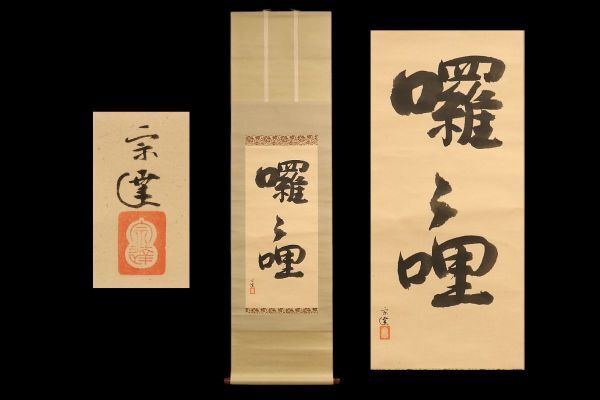 宗達
宗達
囉々哩
宗達
囉々哩
宗達